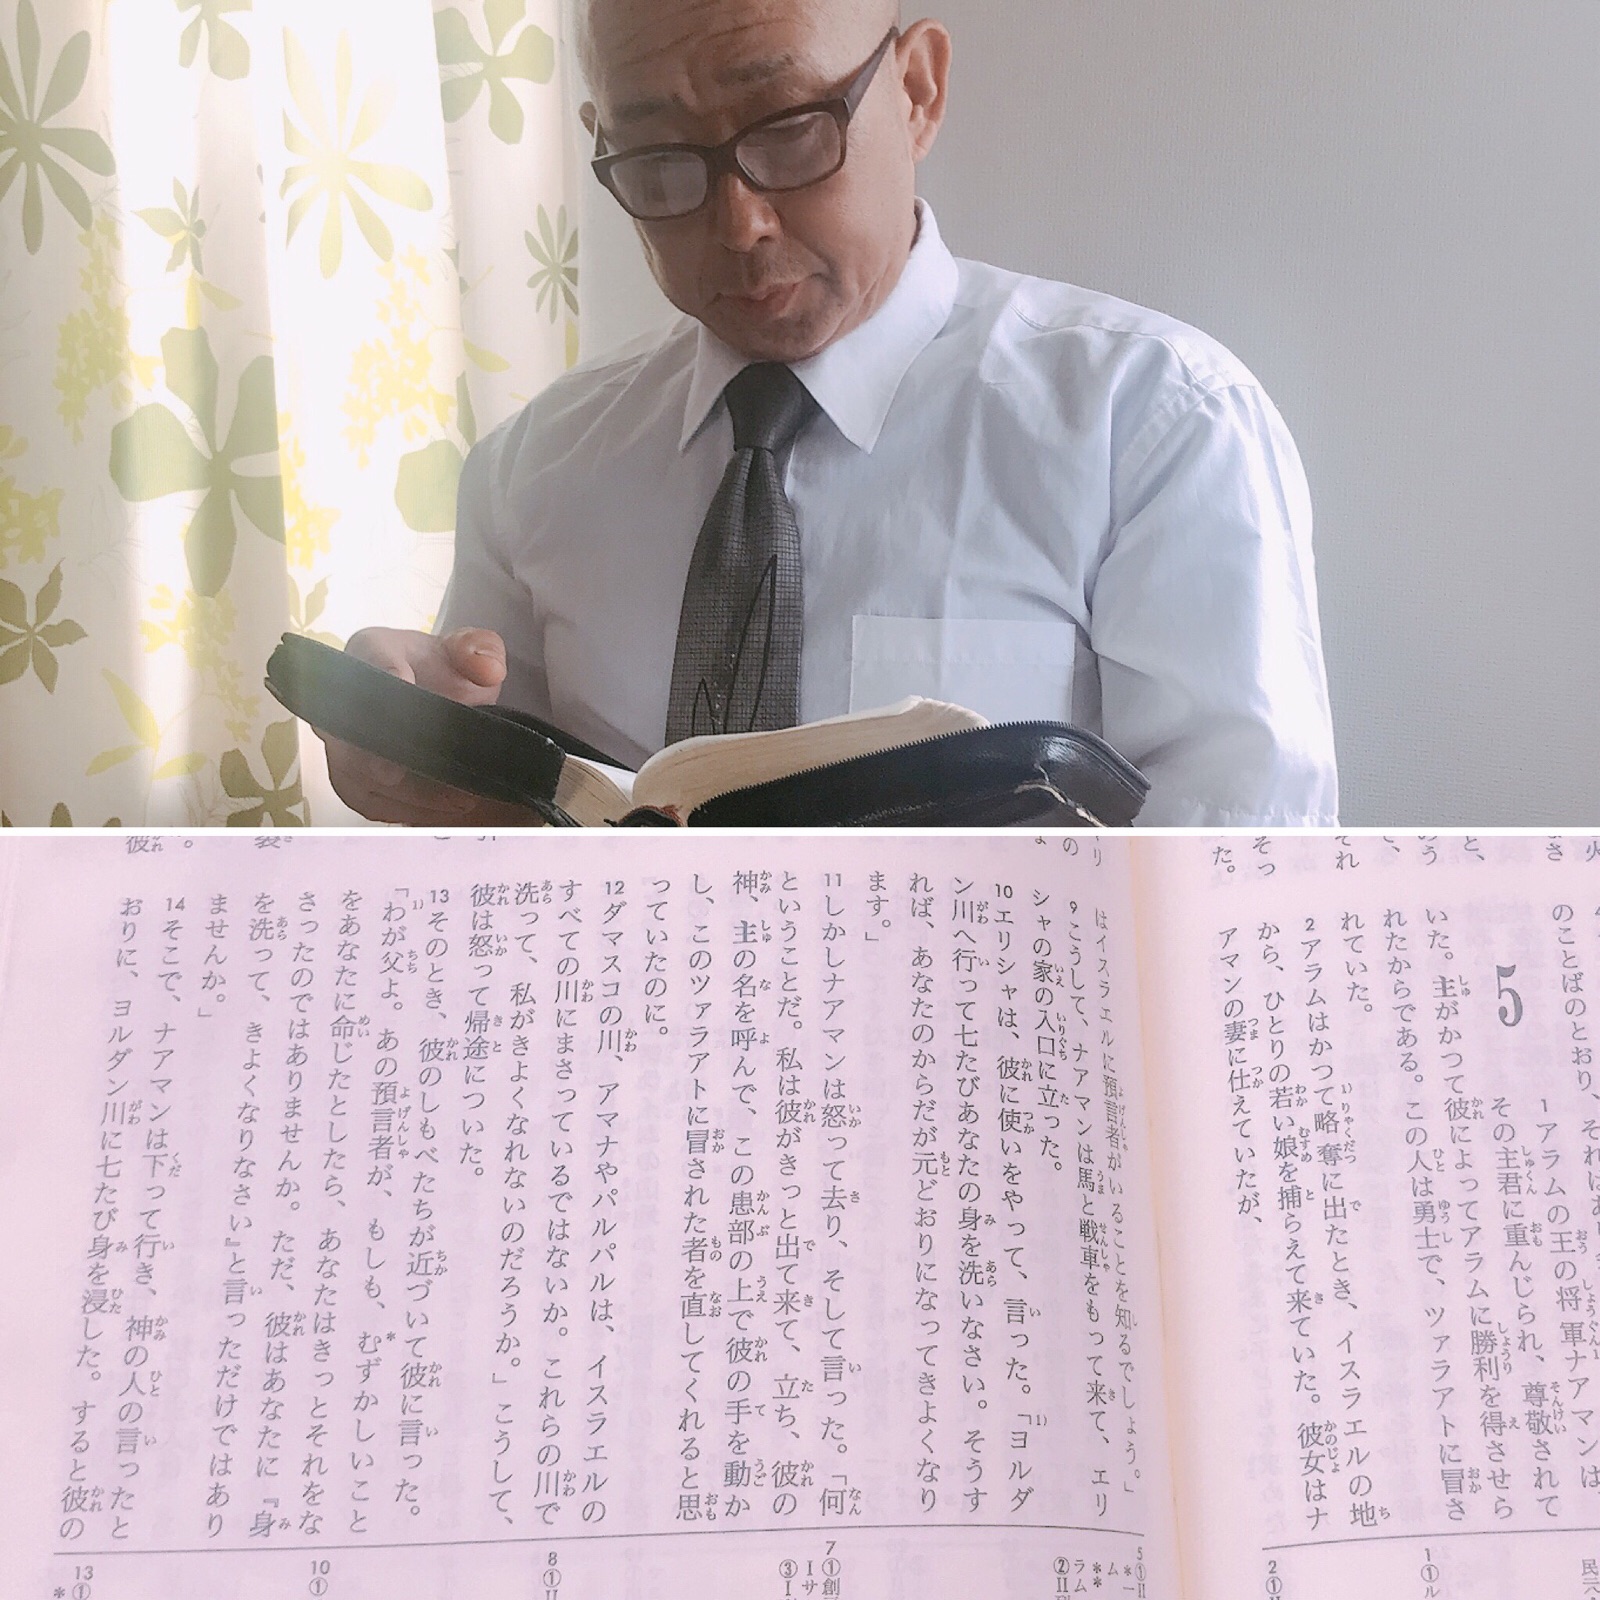 のことばのとおり、それは
5
1アラムの王の将軍ナアマンは、
その主君に重んじられ、尊敬されて
いた。主がかつて彼によってアラムに勝利を得させら
れたからである。この人は勇士で、ツァラアトに冒さ
れていた。
2アラムはかつて略奪に出たとき、イスラエルの地
から、ひとりの若い娘を捕らえて来ていた。彼女はナ
アマンの妻に仕えていたが、
はイスラエルに預言者がいることを知るでしょう。」
9こうして、ナアマンは馬と戦車をもって来て、エリ
シャの家の入口に立った。
10エリシャは、彼に使いをやって、言った。「ヨルダ
ン川へ行って七たびあなたの身を洗いなさい。そうす
れば、あなたのからだが元どおりになってきよくなり
ます。」
11しかしナアマンは怒って去り、そして言った。「何
ということだ。私は彼がきっと出て来て、立ち、彼の
神、主の名を呼んで、この患部の上で彼の手を動か
し、このツァラアトに冒された者を直してくれると思
っていたのに。
12ダマスコの川、アマナやパルパルは、イスラエルの
すべての川にまさっているではないか。これらの川で
洗って、私がきよくなれないのだろうか。」こうして、
彼は怒って帰途についた。
13そのとき、彼のしもべたちが近づいて彼に言った。
「わが父よ。あの預言者が、もしも、むずかしいこと
をあなたに命じたとしたら、あなたはきっとそれをな
さったのではありませんか。ただ、彼はあなたに『身
を洗って、きよくなりなさい』と言っただけではあり
ませんか。」
14そこで、ナアマンは下って行き、神の人の言ったと
おりに、ヨルダン川に七たび身を浸した。すると彼の